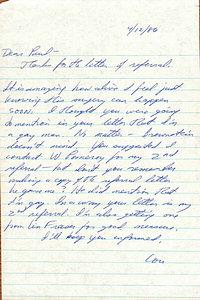 4/12/86
Dear Paul –
Thanks for the letter of referral.
It is amazing how alive I feel just
knowing this surgery can happen
soon. I thought you were going
to mention in your letter that I'm
a gay man. No matter – Brownstein
doesn't mind. You suggested I
contact W Pomeroy for my 2nd
referral – but don't you remember
making a copy of the referral letter
he gave me? He did mention that
I'm gay. I'm using your letter as my
2nd referral. I'm also getting one
from Lin Fraser for good measure.
I'll keep you informed,
Lou